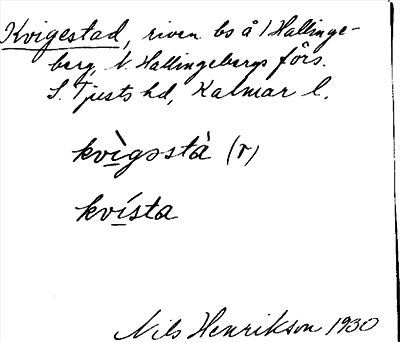 Kvigestad, riven bs å 1 Hallinge-
berg, N. Hallingebergs förs.
S. Tjusts hd, Kalmar l.
kvìgəstà (r)
kvísta
Nils Henrikson 1930